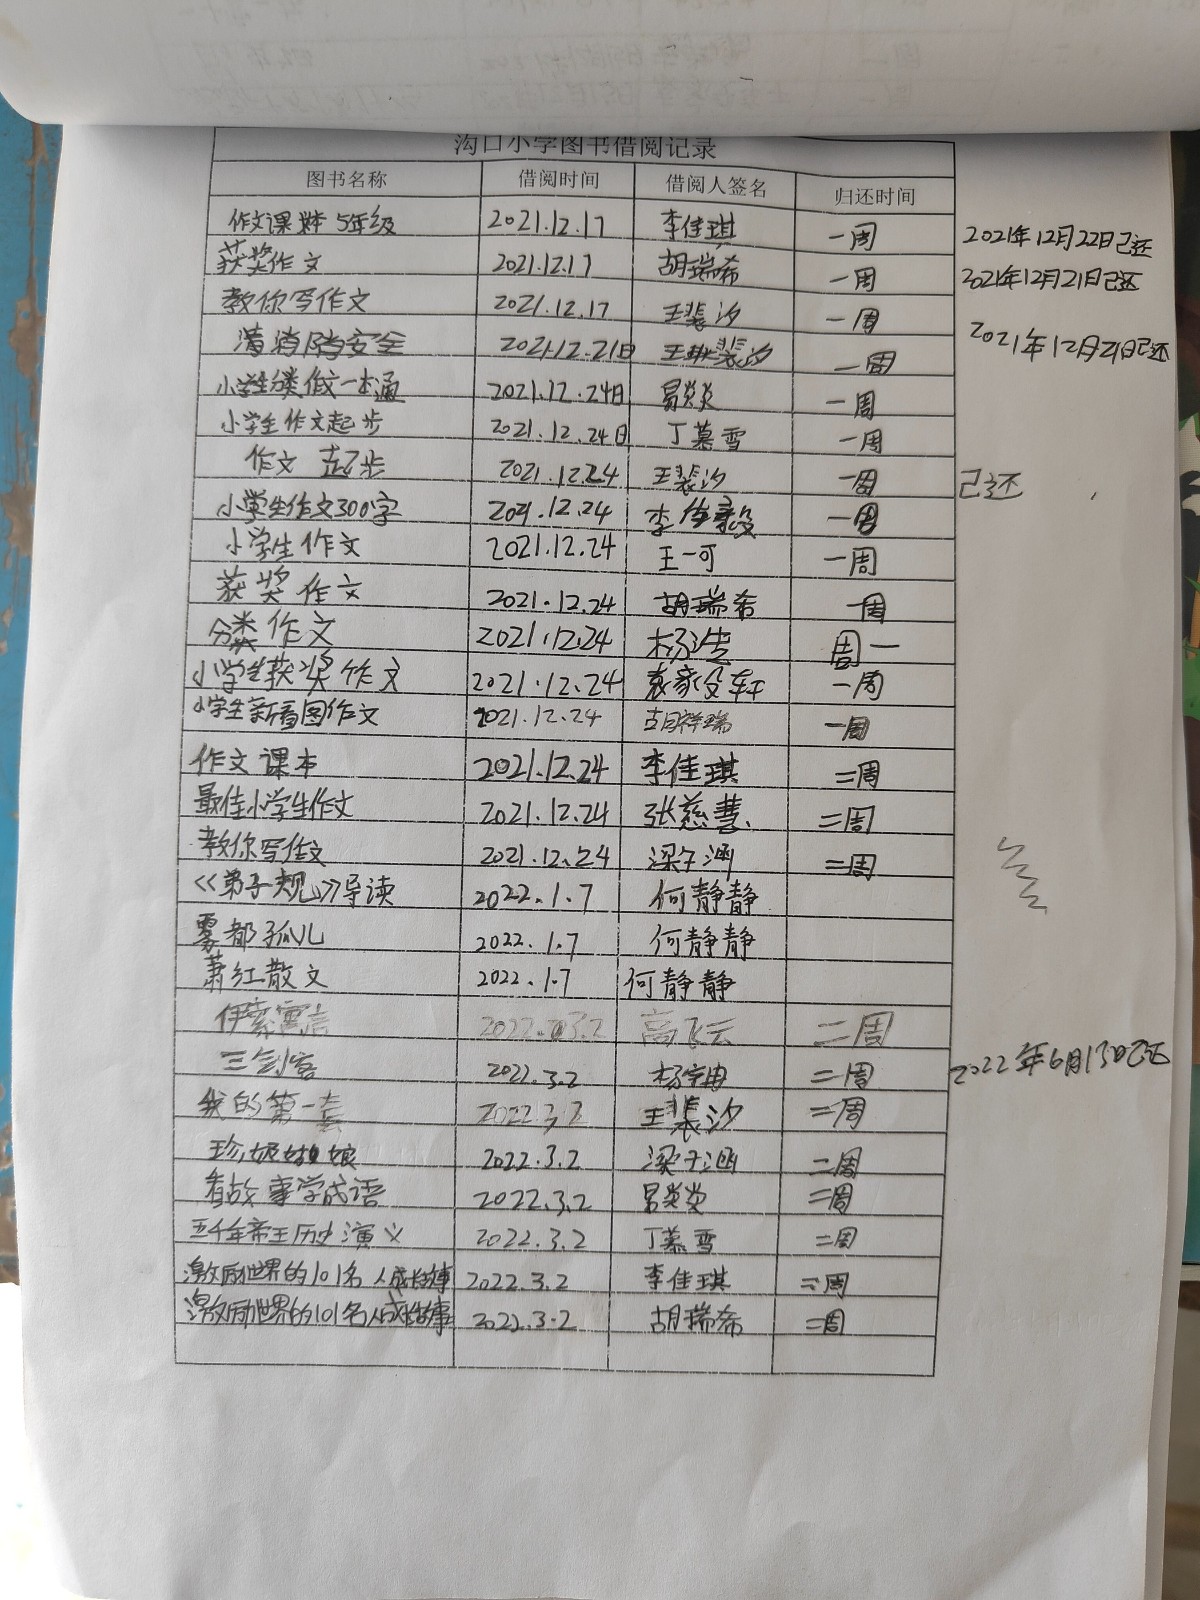 沟口小学图书借阅记录
图书名称 借阅时间 借阅人签名 归还时间
作文课本 5年级 2021.12.17 李佳琪 一周 2021年12月22日已还
获奖作文 2021.12.17 胡瑞希 一周 2021年12月21日已还
教你写作文 2021.12.17 王裴汐 一周
消防安全 2021.12.21日 王裴汐 一周 2021年12月21日已还
小学生分类作文一本通 2021.12.24日 易炎炎 一周
小学生作文起步 2021.12.24日 丁慕雪 一周
作文 起步 2021.12.24 王裴汐 一周 已还
小学生作文300字 2021.12.24 李 一周
小学生作文 2021.12.24 王一可 一周
获奖作文 2021.12.24 胡瑞希 一周
分类作文 2021.12.24 杨 周一
小学生获奖作文 2021.12.24 袁家俊轩 一周
小学生新看图作文 2021.12.24 胡祥瑞 一周
作文课本 2021.12.24 李佳琪 二周
最佳小学生作文 2021.12.24 张慈慧 二周
教你写作文 2021.12.24 梁子涵 二周
《弟子规》导读 2022.1.7 何静静
雾都孤儿 2022.1.7 何静静
萧红散文 2022.1.7 何静静
伊索寓言 2022.3.2 高飞云 二周
三剑客 2022.3.2 杨宇冉 二周 2022年6月13日已还
我的第一套 2022.3.2 王裴汐 二周
珍妮姑娘 2022.3.2 梁子涵 二周
看故事学成语 2022.3.2 易炎炎 二周
五千年帝王历史演义 2022.3.2 丁慕雪 二周
激励世界的101名人成长故事 2022.3.2 李佳琪 二周
激励世界的101名人成长故事 2022.3.2 胡瑞希 二周